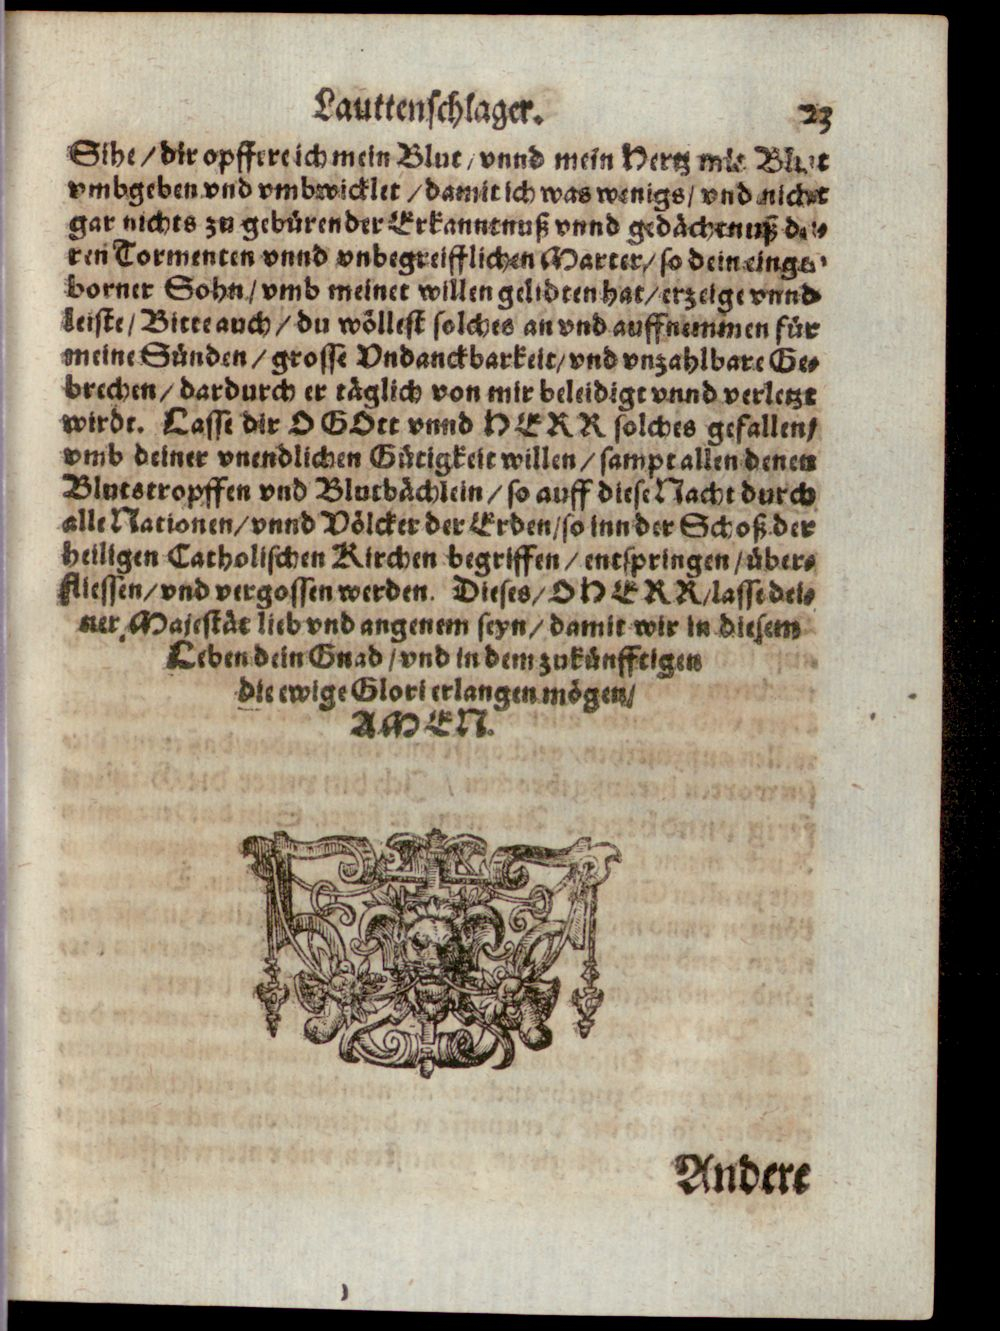 Lauttenschlager. 23
Sihe / dir opffere ich mein Blut / vnnd mein Hertz mit Blut
vmbgeben vnd vmbwicklet / damit ich was wenigs / vnd nicht
gar nichts zu gebürender Erkanntnuß vnnd gedächtnuß de-
ren Tormenten vnnd vnbegreifflichen Marter / so dein einge-
borner Sohn / vmb meinet willen gelidten hat / erzeige vnnd
leiste / Bitte auch / du wöllest solches an vnd auffnemmen für
meine Sünden / grosse Vndanckbarkeit / vnd vnzahlbare Ge-
brechen / dardurch er täglich von mir beleidigt vnnd verletzt
wirdt. Lasse dir O GOtt vnnd HERR solches gefallen /
vmb deiner vnendlichen Gütigkeit willen / sampt allen denen
Blutstropffen vnd Blutbächlein / so auff diese Nacht durch
alle Nationen / vnnd Völcker der Erden / so inn der Schoß der
heiligen Catholischen Kirchen begriffen / entspringen / über-
fliessen / vnd vergossen werden. Dieses / O HERR / lasse dei-
ner Majestät lieb vnd angenem seyn / damit wir in diesem
Leben dein Gnad / vnd in dem zukünfftigen
die ewige Glori erlangen mögen /
AMEN.
Andere